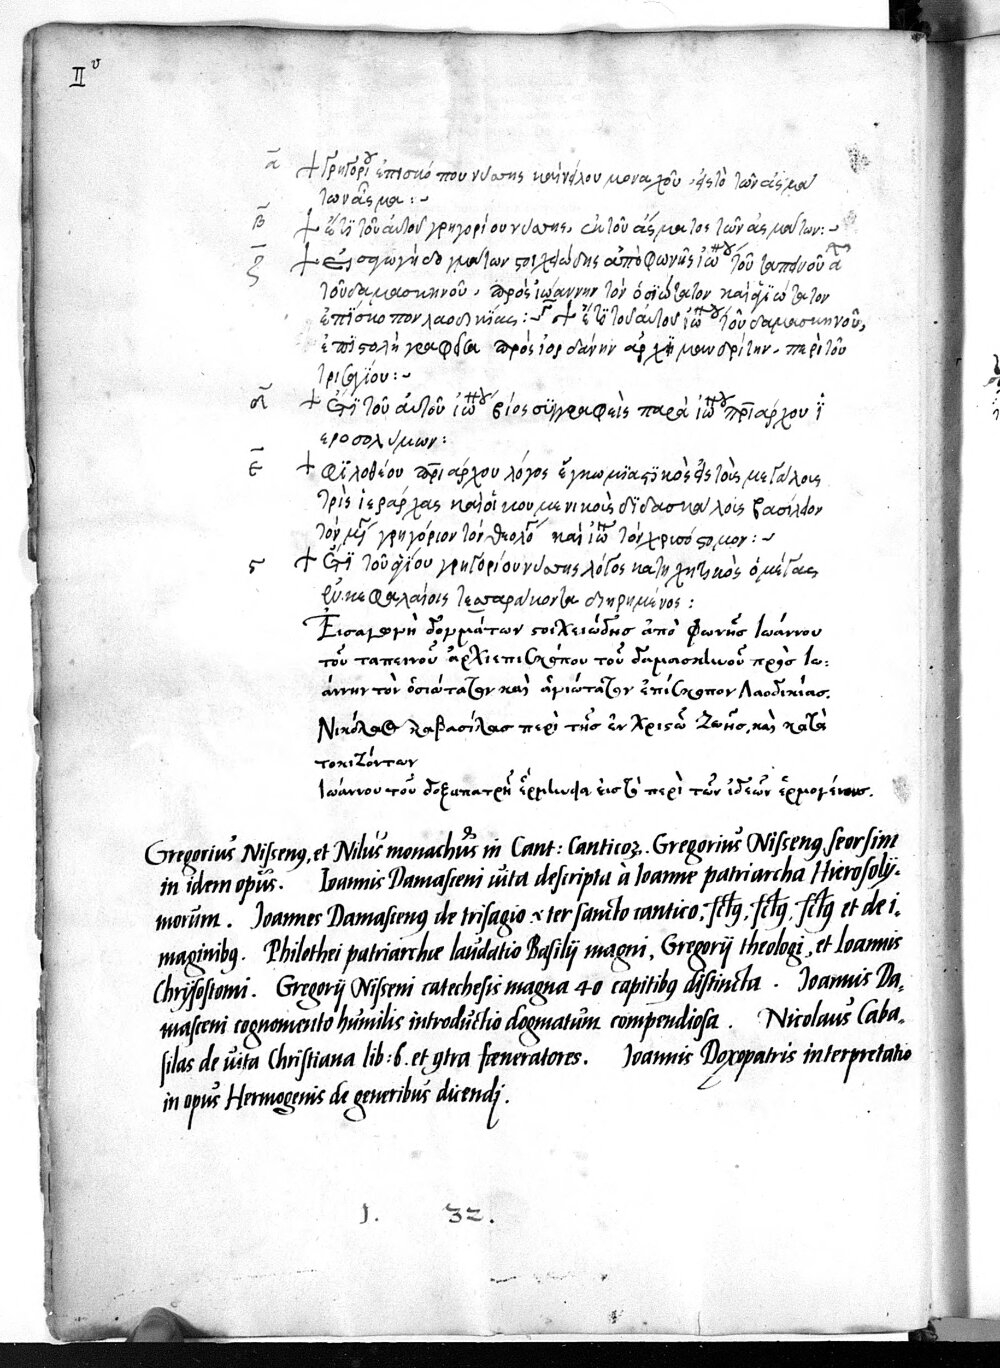 II v
α + Γρηγορίου ἐπισκόπου νύσης καὶ νείλου μοναχοῦ, εἰς τὸ τῶν ἀσμά
των ἆσμα :~
β + ἔτι τοῦ αὐτοῦ γρηγορίου νύσης, ἐκ τοῦ ἄσματος τῶν ἀσμάτων :~
γ + Εἰσαγωγὴ δογμάτων στοιχειώδης ἀπὸ φωνῆς ἰω τοῦ ταπεινοῦ
τοῦ δαμασκηνοῦ, πρὸς ἰωάννην τὸν ὁσιώτατον καὶ ἁγιώτατον
ἐπίσκοπον λαοδικίας :~ + ἔτι τοῦ αὐτοῦ ἰω τοῦ δαμασκηνοῦ,
ἐπιστολὴ γραφεῖσα πρὸς ἰορδάνην ἀρχιμανδρίτην, περὶ τοῦ
τρισαγίου :~
δ + Ἔτι τοῦ αὐτοῦ ἰω βίος συγγραφεὶς παρὰ ἰω πριάρχου ἱ
εροσολύμων :
ε + Φιλοθέου πριάρχου λόγος ἐγκωμιαστικὸς εἰς τοὺς μεγάλους
τρὶς ἱεράρχας καὶ οἰκουμενικοὺς διδασκάλους βασίλειον
τὸν μέγαν γρηγόριον τὸν θεολό καὶ ἰω τὸν χρυσόστομον :~
ς + Ἔτι τοῦ ἁγίου γρηγορίου νύσης λόγος κατηχητικὸς ὁ μέγας
ἐν κεφαλαίοις τεσσαράκοντα διηρημένος :
Εἰσαγωγὴ δογμάτων στοιχειώδης ἀπὸ φωνῆς Ἰωάννου
τοῦ ταπεινοῦ ἀρχιεπισκόπου τοῦ δαμασκηνοῦ πρὸς Ἰω:
άννην τὸν ὁσιώτατον καὶ ἁγιώτατον ἐπίσκοπον Λαοδικίας.
Νικόλαου καβασίλας περὶ τῆς ἐν Χριστῷ Ζωῆς, καὶ κατὰ
τοκιζόντων
Ἰωάννου τοῦ δοξαπατρῆ ἑρμηνεία εἰς τὸ περὶ τῶν ἰδεῶν ἑρμογένους.
Gregorius Nissenus, et Nilus monachus in Cant: Canticoꝝ. Gregorius Nissenus seorsim
in idem opus. Ioannis Damasceni uita descripta à Ioanne patriarcha Hierosoly-
morum. Ioannes Damascenus de trisagio x ter sancto cantico, sctus, sctus, sctus et de i-
maginibus. Philothei patriarchæ laudatio Basilij magni, Gregorij theologi, et Ioannis
Chrysostomi. Gregorij Nisseni catechesis magna 40 capitibus distincta. Ioannis Da-
masceni cognomento humilis introductio dogmatum compendiosa. Nicolaus Caba-
silas de uita Christiana lib: 6. et contra fæneratores. Ioannis Doxopatris interpretatio
in opus Hermogenis de generibus dicendi.
1. 32.